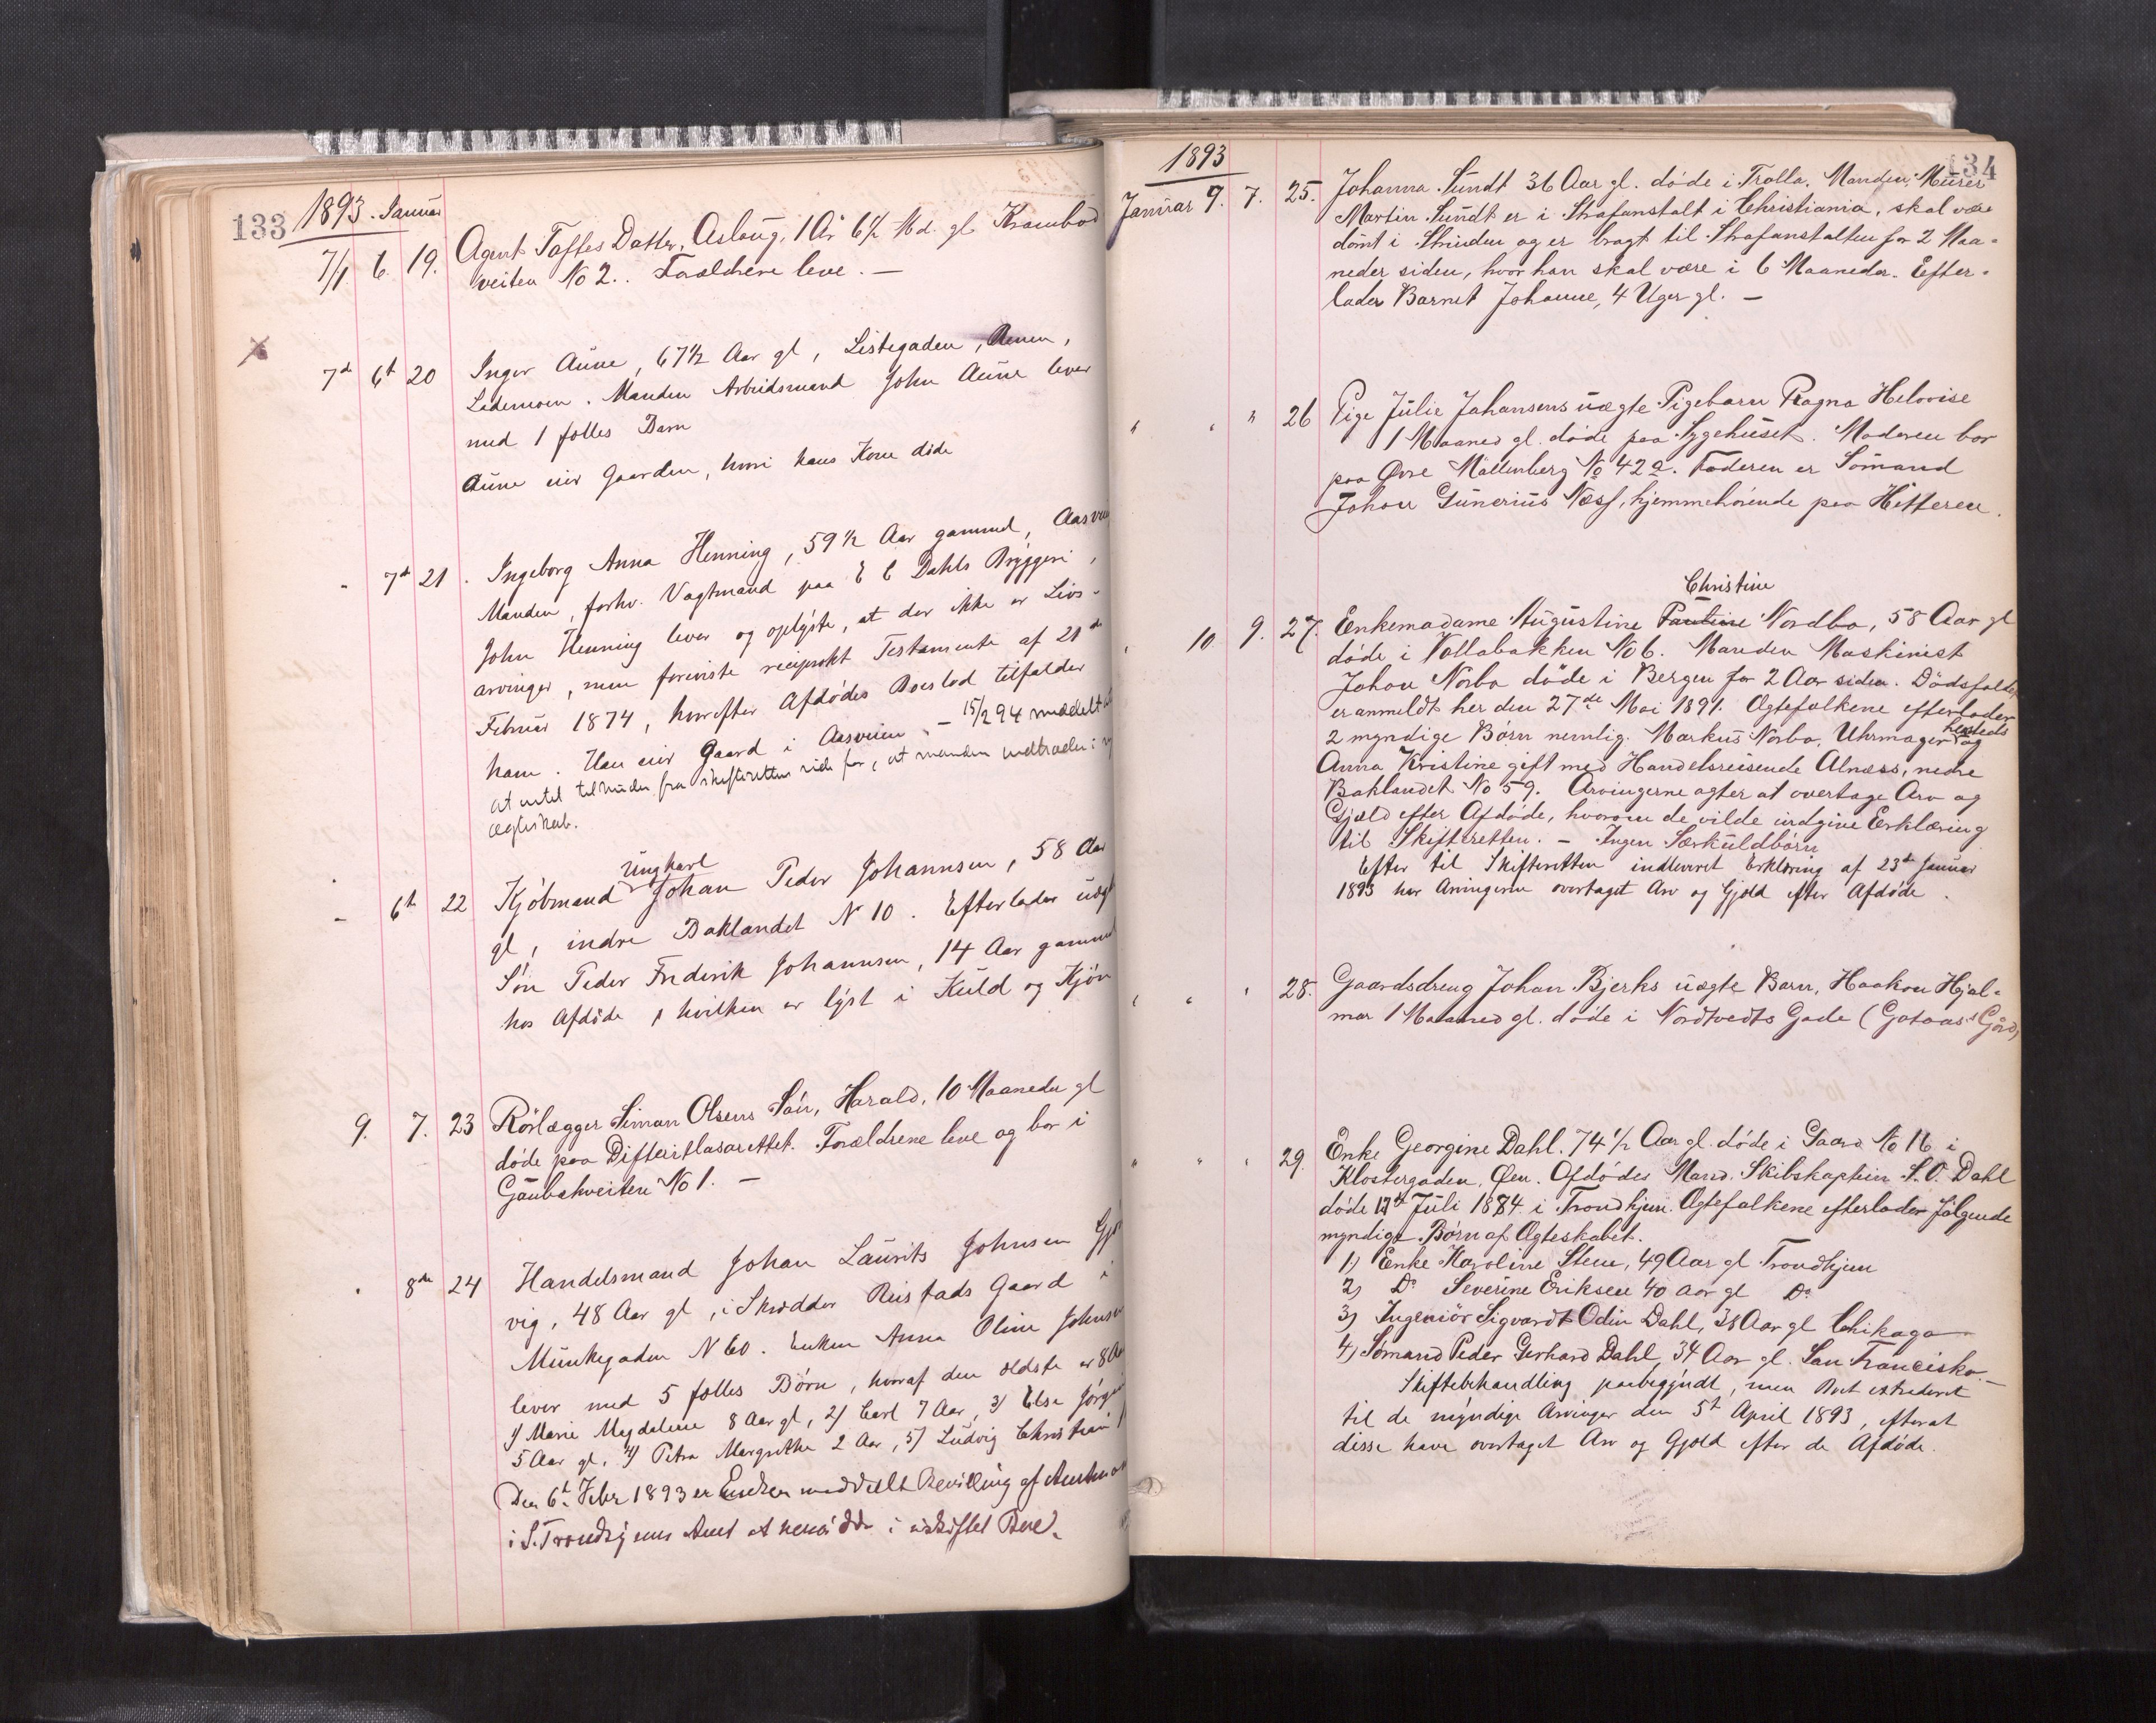 133
1893. Januar
7/1. 6. 19. Agent Tafles Datter, Aslaug, 1 År 6½ Md. gl Krambod
veiten No 2.. Forældrene leve. —
7de 6t 20 Inger Aune, 67½ Aar gl, Listegaden,
Lademoen. Manden Arbeidsmand John Aune lever
med 1 fælles Barn
Aune eier Gaarden, hvori hans Kone døde
" 7de 21. Ingeborg Anna Henning, 59½ Aar gammel, Aasvei
Manden, forhv. Vagtmand paa E C Dahls Bryggeri,
John Henning lever og oplyste, at der ikke er Livs-
arvinger, men foreviste reciprokt Testamente af 21de
Februar 1874, hvorefter Afdødes Boeslod tilfalder
ham. Han eier Gaard i Aasveien. — 15/2 94 meddelt
at intet til hinder fra skifterettens side for, at manden indtræder i
ægteskab.
ungkarl
" 6t 22 Kjøbmand Johan Peder Johannsen, 58 Aar
gl, indre Baklandet N 10. Efterlader uægt
Søn Peder Frederik Johannsen, 14 Aar gammel
hos Afdøde, hvilken er lyst i Kuld og Kjøn
9. 7. 23 Rørlægger Simon Olsens Søn, Harald, 10 Maaneder gl
døde paa Difteritlasarettet. Forældrene leve og bor i
Gaubekveiten No 1. —
" 8de 24 Handelsmand Johan Laurits Johnsen
vig, 48 Aar gl, i Skrædder Reistads Gaard i
Munkegaden N 60. Enken Anna Oline Johnsen
lever med 5 fælles Børn, hvoraf den ældste er 8 Aar
1) Marie Magdalene 8 Aar gl, 2) Carl 7 Aar, 3) Elsa Jørgine
5 Aar gl, 4) Petra Margrethe 2 Aar, 5) Ludvig Christian
Den 6t Febr 1893 er Enken meddelt Bevilling af Amtmanden
i S. Trondhjems Amt at hensidde i uskiftet Bo.
134
1893
Januar 9. 7. 25. Johanna Sundt 36 Aar gl. døde i Trolla. Manden, Murer
Martin Sundt er i Strafanstalt i Christiania, skal være
dømt i Strinden og er bragt til Strafanstalten for 2 Maa-
neder siden, hvor han skal være i 6 Maaneder. Efter-
lader Barnet Johanne, 4 Uger gl. —
" " " 26 Pige Julie Johansens uægte Pigebarn Ragna Helovise
1 Maaned gl. døde paa Sygehuset. Moderen bor
paa Øvre Møllenberg No 422. Faderen er Sømand
Johan Gunerius Næss, hjemmehørende paa Hitteren.
Christine
" 10 9. 27. Enkemadame Augustine Pauline Nordbo, 58 Aar gl
døde i Vollabakken No 6. Manden Maskinist
Johan Norbo døde i Bergen for 2 Aar siden. Dødsfaldet
er anmeldt her den 27de Mai 1891. Ægtefolkene efterlader
2 myndige Børn nemlig. Markus Norbo, Uhrmager hersteds og
Anna Kristine gift med Handelsreisende Alnæss, nedre
Baklandet No 59. Arvingerne agter at overtage Arv og
Gjæld efter Afdøde, hvorom de vilde indgive Erklæring
til Skifteretten. — Ingen Særkuldbørn
Efter til Skifteretten indleveret Erklæring af 23de Januar
1893 har Arvingerne overtaget Arv og Gjeld efter Afdøde.
" " " 28. Gaardsdreng Johan Bjerks uægte Barn, Haakon Hjal-
mar 1 Maaned gl. døde i Nordtvedts Gade (Gotaas's Gård)
" " " 29. Enke Georgine Dahl. 74½ Aar gl. døde i Gaard No 16 i
Klostergaden, Øen. Afdødes Mand, Skibskaptein S. O. Dahl
døde 17de Juli 1884 i Trondhjem. Ægtefolkene efterlader følgende
myndige Børn af Ægteskabet.
1) Enke Karoline Stene, 49 Aar gl Trondhjem
2) Do Severine Eriksen 40 Aar gl Do
3) Ingeniør Sigvardt Odin Dahl, 38 Aar gl Chikago
4) Sømand Peder Gerhard Dahl, 34 Aar gl. San Francisko. —
Skiftebehandling paabegyndt, men Boet extraderet
til de myndige Arvinger den 5t April 1893, efterat
disse have overtaget Arv og Gjeld efter de Afdøde.